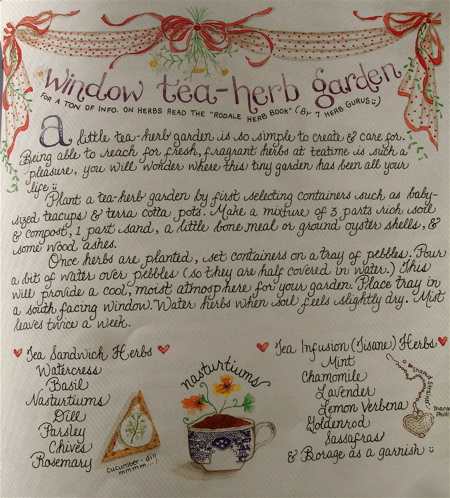 Window tea-herb garden
FOR A TON OF INFO. ON HERBS READ THE "RODALE HERB BOOK" (BY 7 HERB GURUS :)
a little tea-herb garden is so simple to create & care for.
Being able to reach for fresh, fragrant herbs at teatime is such a
pleasure, you will wonder where this tiny garden has been all your
life :)
Plant a tea-herb garden by first selecting containers such as baby-
sized teacups & terra cotta pots. Make a mixture of 3 parts rich soil
& compost, 1 part sand, a little bone meal or ground oyster shells, &
some wood ashes.
Once herbs are planted, set containers on a tray of pebbles. Pour
a bit of water over pebbles (so they are half covered in water.) This
will provide a cool, moist atmosphere for your garden. Place tray in
a south facing window. Water herbs when soil feels slightly dry. Mist
leaves twice a week.
Tea Sandwich Herbs
Watercress
Basil
Nasturtiums
Dill
Parsley
Chives
Rosemary
cucumber-dill
mmmm...!
nasturtiums
Tea Infusion (Tisane) Herbs
Mint
Chamomile
Lavender
Lemon Verbena
Goldenrod
Sassafras
& Borage as a garnish